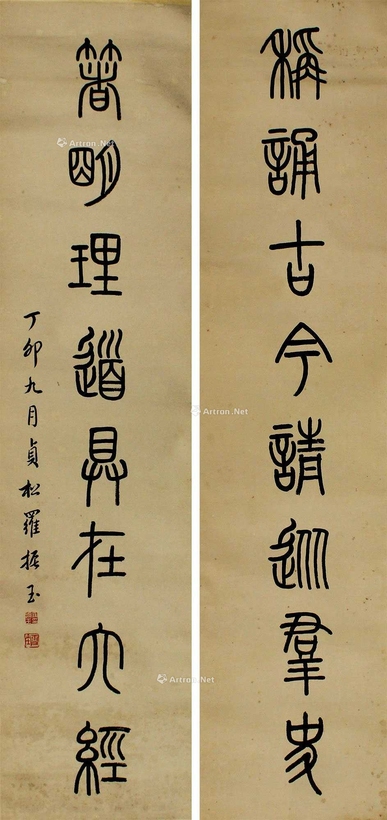 稱誦古今請巡羣史
箸明理道具在六經
丁卯九月貞松羅振玉
Artron.Net
Artron.Net
Artron.Net